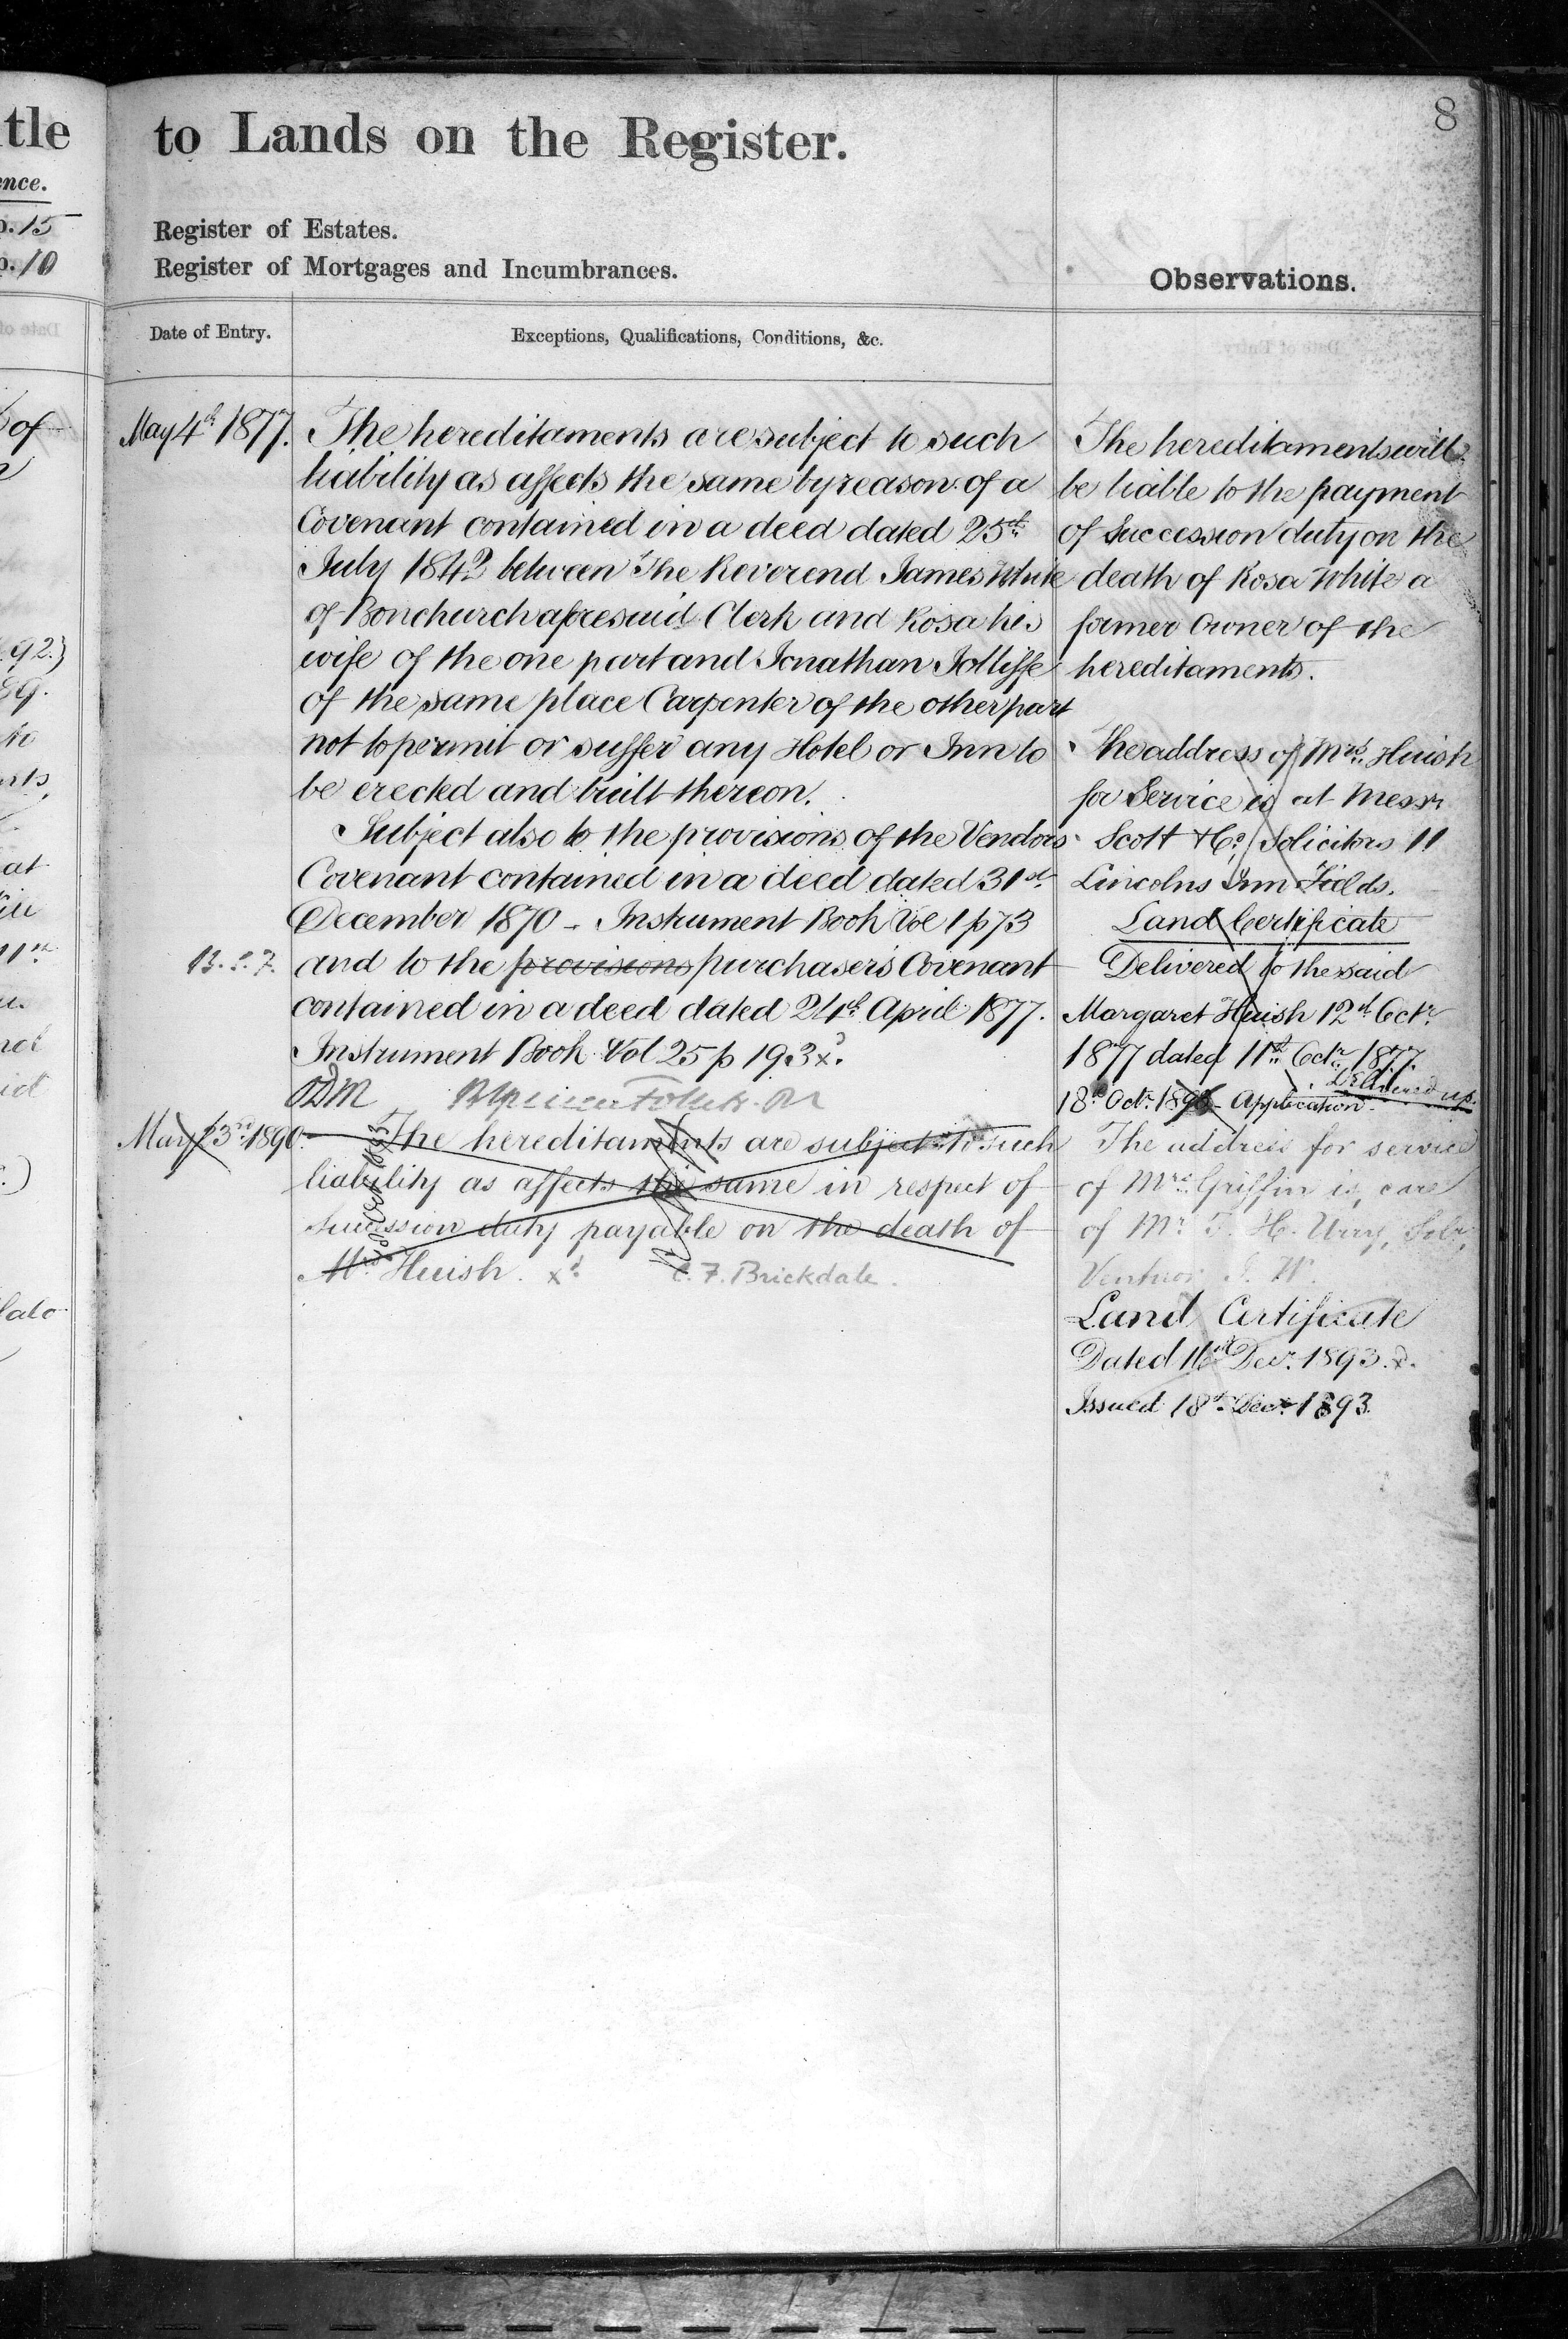 to Lands on the Register.
8
Register of Estates.
Register of Mortgages and Incumbrances.
Observations.
Date of Entry.
Exceptions, Qualifications, Conditions, &c.
May 4th 1877.
The hereditaments are subject to such
liability as affects the same by reason of a
Covenant contained in a deed dated 25th
July 1842 between The Reverend James White
of Bonchurch aforesaid Clerk and Rosa his
wife of the one part and Jonathan Jolliffe
of the same place Carpenter of the other part
not to permit or suffer any Hotel or Inn to
be erected and built thereon.
Subject also to the provisions of the Vendors
Covenant contained in a deed dated 31st
December 1870 - Instrument Book Vol 1 p 73
and to the provisions purchasers Covenant
contained in a deed dated 24th April 1877.
Instrument Book Vol 25 p 193
May 23rd 1890.
The hereditaments are subject to such
liability as affects the same in respect of
succession duty payable on the death of
Mrs Huish.
C. F. Brickdale.
The hereditaments will
be liable to the payment
of Succession duty on the
death of Rosa White a
former Owner of the
hereditaments.
The address of Mrs. Huish
for Service is at Messrs
Scott & Co. Solicitors 11
Lincolns Inn Fields.
Land Certificate
Delivered to the said
Margaret Huish 12th Octr.
1877 dated 11th Octr. 1877.
Delivered up.
18th Octr. Application
The address for service
of Mrs. Griffin is, care
of Mr. F. H. Urry, Solr,
Ventnor I. W.
Land Certificate
Dated 16th Decr. 1893.
Issued 18th Decr. 1893.
tle
ence.
p. 15
p. 10
of
92.)
89.
at